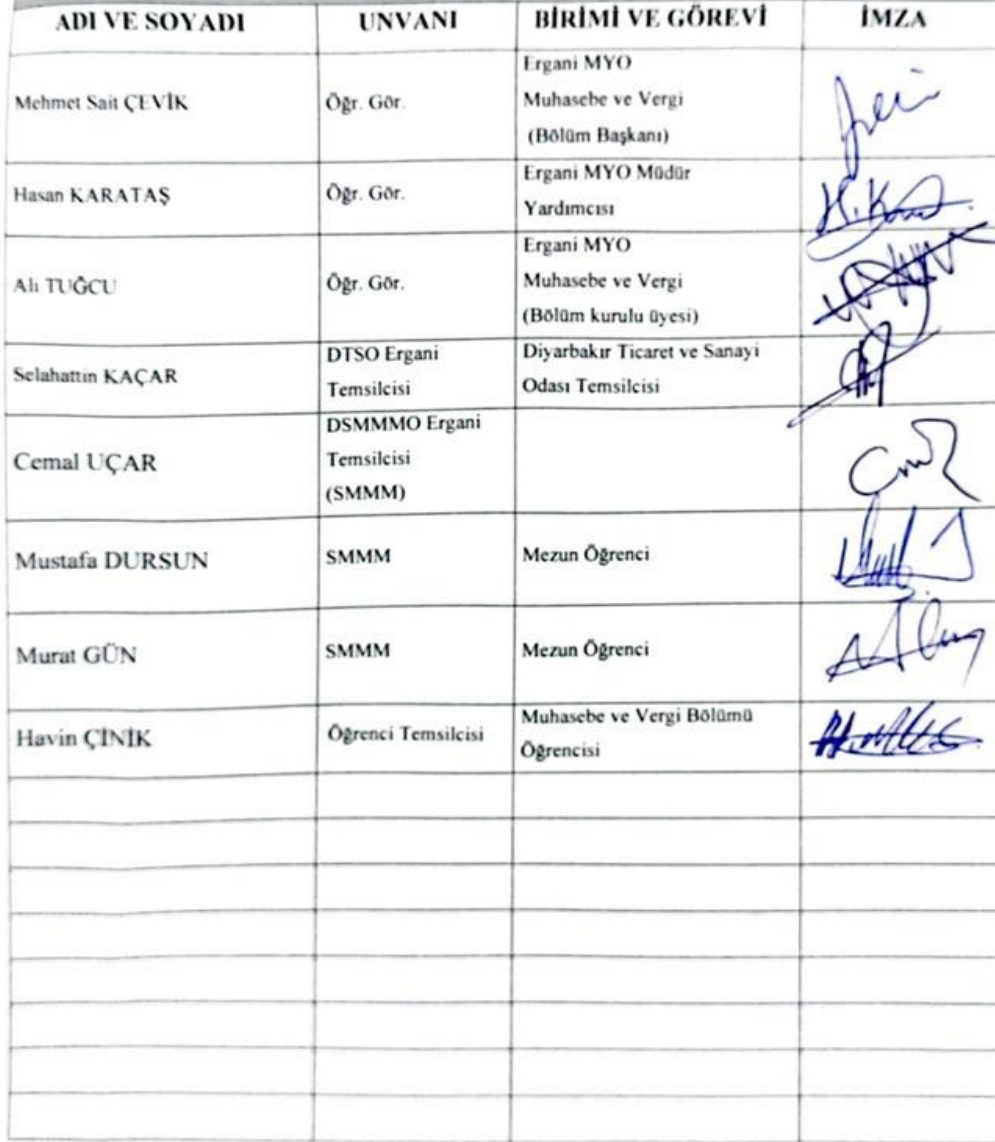 ADI VE SOYADI UNVANI BİRİMİ VE GÖREVİ İMZA
Mehmet Sait ÇEVİK Öğr. Gör. Ergani MYO
Muhasebe ve Vergi
(Bölüm Başkanı)
Hasan KARATAŞ Öğr. Gör. Ergani MYO Müdür
Yardımcısı
Ali TUĞCU Öğr. Gör. Ergani MYO
Muhasebe ve Vergi
(Bölüm kurulu üyesi)
Selahattin KAÇAR DTSO Ergani
Temsilcisi
Diyarbakır Ticaret ve Sanayi
Odası Temsilcisi
Cemal UÇAR DSMMMO Ergani
Temsilcisi
(SMMM)
Mustafa DURSUN SMMM Mezun Öğrenci
Murat GÜN SMMM Mezun Öğrenci
Havin ÇİNİK Öğrenci Temsilcisi Muhasebe ve Vergi Bölümü
Öğrencisi